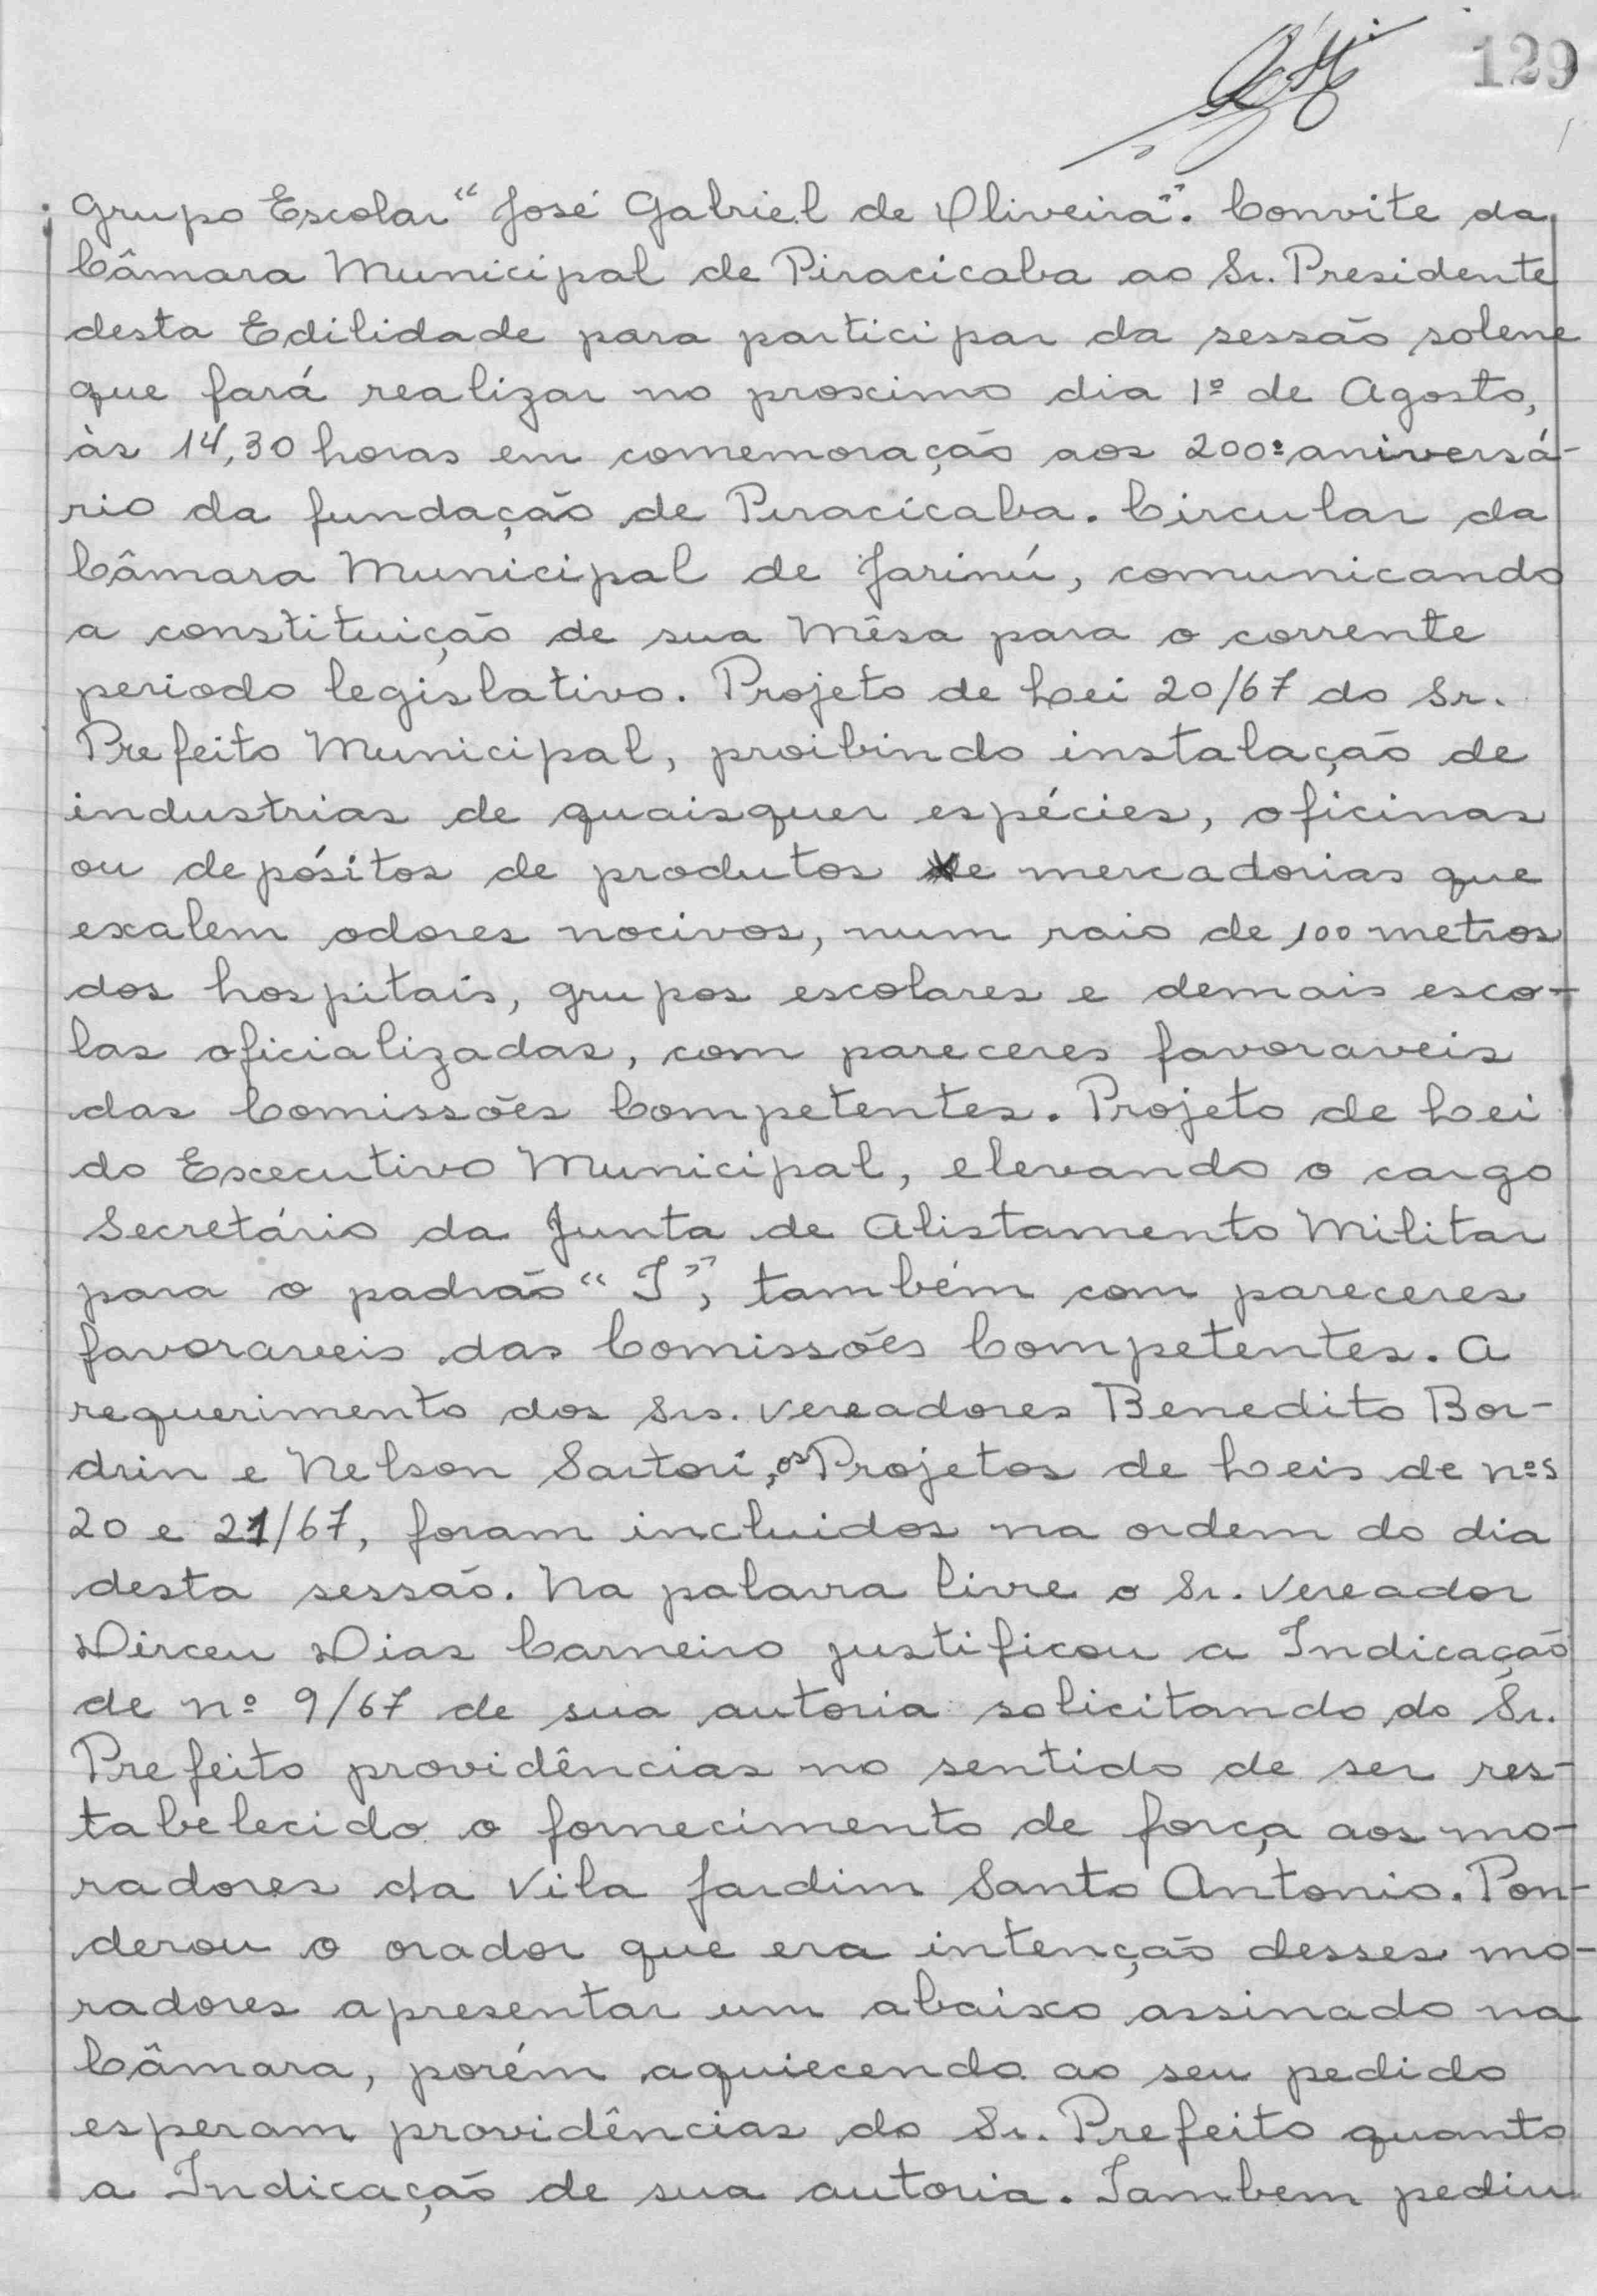 129
Grupo Escolar "José Gabriel de Oliveira". Convite da
Câmara Municipal de Piracicaba ao Sr. Presidente
desta Edilidade para participar da sessão solene
que fará realizar no proximo dia 1º de Agosto,
às 14,30 horas em comemoração aos 200º aniversá-
rio da fundação de Piracicaba. Circular da
Câmara Municipal de Jarinú, comunicando
a constituição de sua Mêsa para o corrente
periodo legislativo. Projeto de Lei 20/67 do Sr.
Prefeito Municipal, proibindo instalação de
industrias de quaisquer espécies, oficinas
ou depósitos de produtos e mercadorias que
exalem odores nocivos, num raio de 100 metros
dos hospitais, grupos escolares e demais esco-
las oficializadas, com pareceres favoraveis
das Comissões Competentes. Projeto de Lei
do Executivo Municipal, elevando o cargo
Secretário da Junta de Alistamento Militar
para o padrão "I", também com pareceres
favoraveis das Comissões Competentes. A
requerimento dos Srs. Vereadores Benedito Bor-
drin e Nelson Sartori, os Projetos de Leis de nºs
20 e 21/67, foram incluidos na ordem do dia
desta sessão. Na palavra livre o Sr. Vereador
Dirceu Dias Carneiro justificou a Indicação
de nº 9/67 de sua autoria solicitando do Sr.
Prefeito providências no sentido de ser res-
tabelecido o fornecimento de força aos mo-
radores da Vila Jardim Santo Antonio. Pon-
derou o orador que era intenção desses mo-
radores apresentar um abaixo assinado na
Câmara, porém aquiecendo ao seu pedido
esperam providências do Sr. Prefeito quanto
a Indicação de sua autoria. Tambem pediu